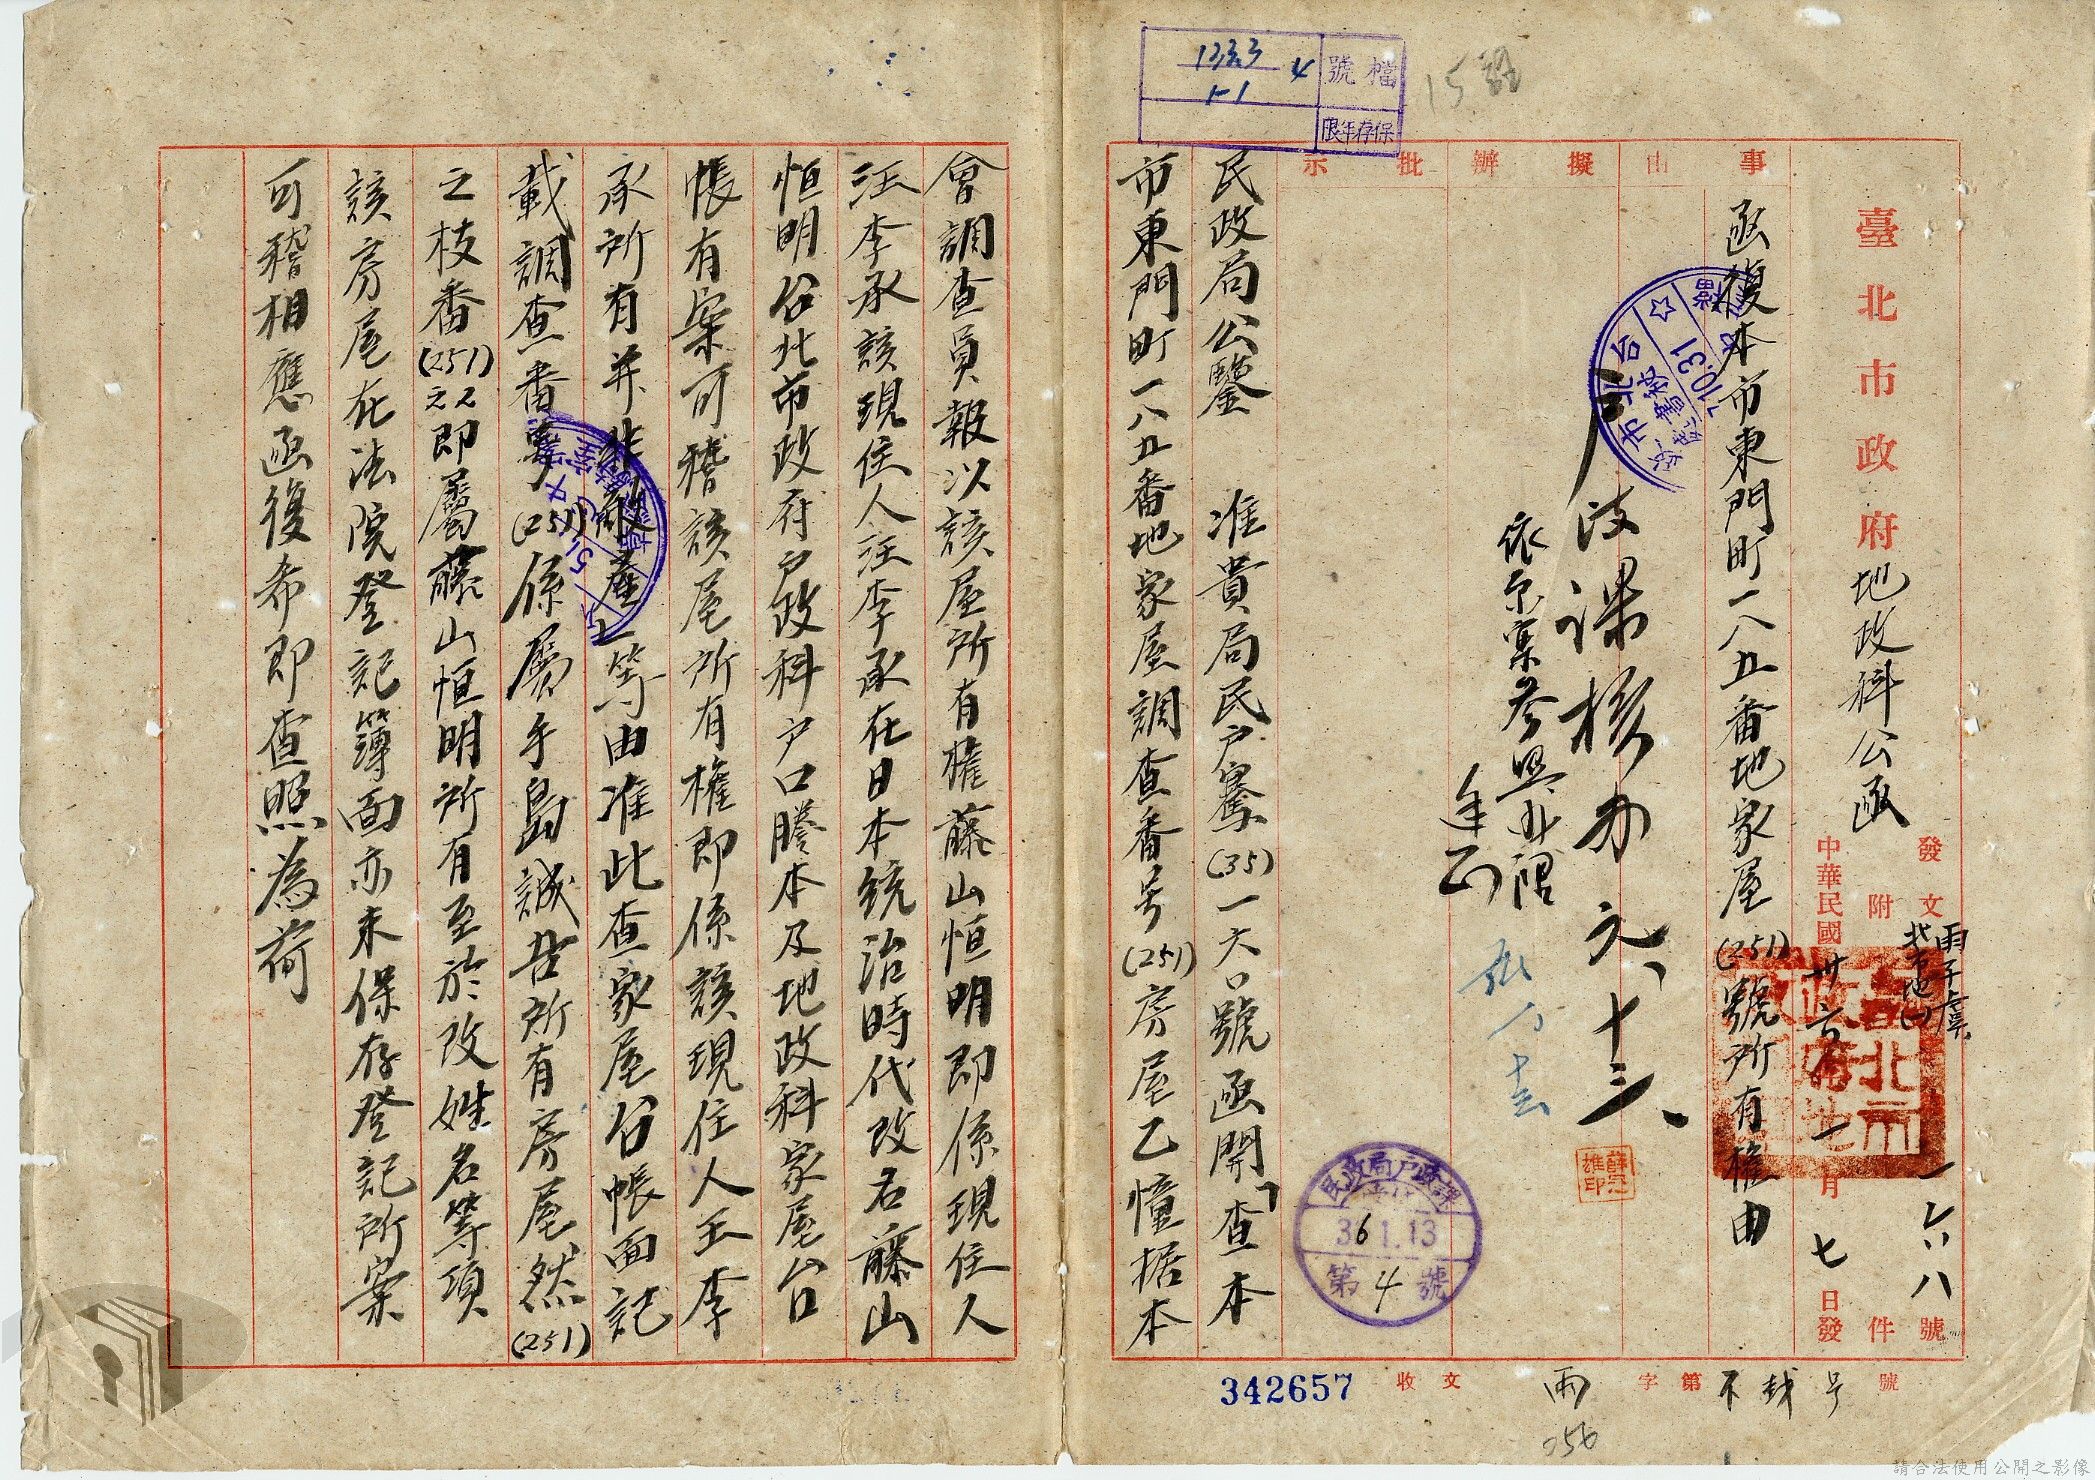 檔號
1233 4
1-1
保存年限
15
臺北市政府地政科公函
發文
附件
號
一六八
中華民國卅六年一月七日發
事由
擬辦
批示
函復本市東門町一八五番地家屋(251)號所有權由
戶政課核办 元、十三、
依原案參照
民政局戶政課
36.1.13
第4號
民政局公鑒 准貴局民戶騫(35)一六〇號函開「查本
市東門町一八五番地家屋調查番号(251)房屋乙憧据本
會調查員報以該屋所有權藤山恒明即係現住人
汪李承該現住人汪李承在日本統治時代改名藤山
恒明台北市政府戶政科戶口謄本及地政科家屋台
帳有案可稽該屋所有權即係該現住人王李
承所有并非敵產」等由准此查家屋台帳面記
載調查番号(251)係屬手島誠吾所有房屋然(251)
之枝番(251)之乙即屬藤山恒明所有至於改姓名等項
該房屋在法院登記簿面亦未保存登記所案
可稽相應函復希即查照為荷
342657
收文
雨
字第
不列号
號
256
請合法使用公開之影像